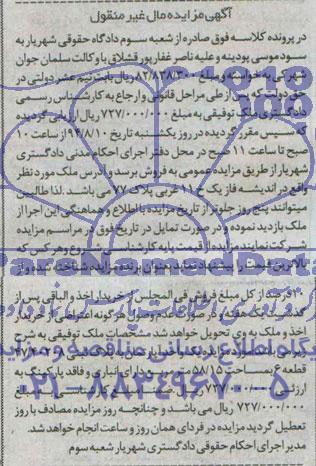 آگهی مزایده مال غیر منقول
در پرونده کلاسه فوق صادره از شعبه سوم دادگاه حقوقی شهریار به
سود موسی پودینه و علیه ناصر غفارپور قشلاق با وکالت سلمان جوان
شهرکی به خواسته و مبلغ ۸۲/۸۳۸/۳۰۰ ریال بابت نیم عشر دولتی در
حق دولت که پس از طی مراحل قانونی و ارجاع به کارشناس رسمی
دادگستری ملک توقیفی به مبلغ ۷۲۷/۰۰۰/۰۰۰ ریال ارزیابی گردیده
که سپس مقرر گردیده در روز یکشنبه تاریخ ۹۴/۸/۱۰ از ساعت ۱۰
صبح تا ساعت ۱۱ صبح در محل دفتر اجرای احکام مدنی دادگستری
شهریار از طریق مزایده عمومی به فروش برسد و آدرس ملک مورد نظر
واقع در اندیشه فاز یک خ ۱۱ غربی پلاک ۷۷ می باشد. لذا طالبین
میتوانند پنج روز جلوتر از تاریخ مزایده با اطلاع و هماهنگی این اجرا از
ملک بازدید نموده و در صورت تمایل در تاریخ فوق در مراسم مزایده
شرکت نمایند مزایده از قیمت پایه کارشناسی شروع و هر کس که
بالاترین قیمت را پیشنهاد نماید بعنوان برنده مزایده شناخته شده و از
۱۰ درصد از کل مبلغ فروش فی المجلس از خریدار اخذ و الباقی پس از
گذشت یک هفته و در صورت عدم وصول هرگونه اعتراض از خریدار
اخذ و ملک به وی تحویل خواهد شد مشخصات ملک توقیفی به شرح
زیر می باشد مورد مزایده یک واحد آپارتمان به پلاک ثبتی
قطعه ۶ بمساحت ۵۸/۱۵ متر مربع دارای انباری و فاقد پارکینگ به
ارزش ۷۲۷/۰۰۰/۰۰۰ ریال
۷۲۷/۰۰۰/۰۰۰ ریال می باشد و چنانچه روز مزایده مصادف با روز
تعطیل گردید مزایده در فردای همان روز و ساعت انجام خواهد شد.
مدیر اجرای احکام حقوقی دادگستری شهریار شعبه سوم
۰۲۱-۸۸۳۴۹۶۷۰-۵